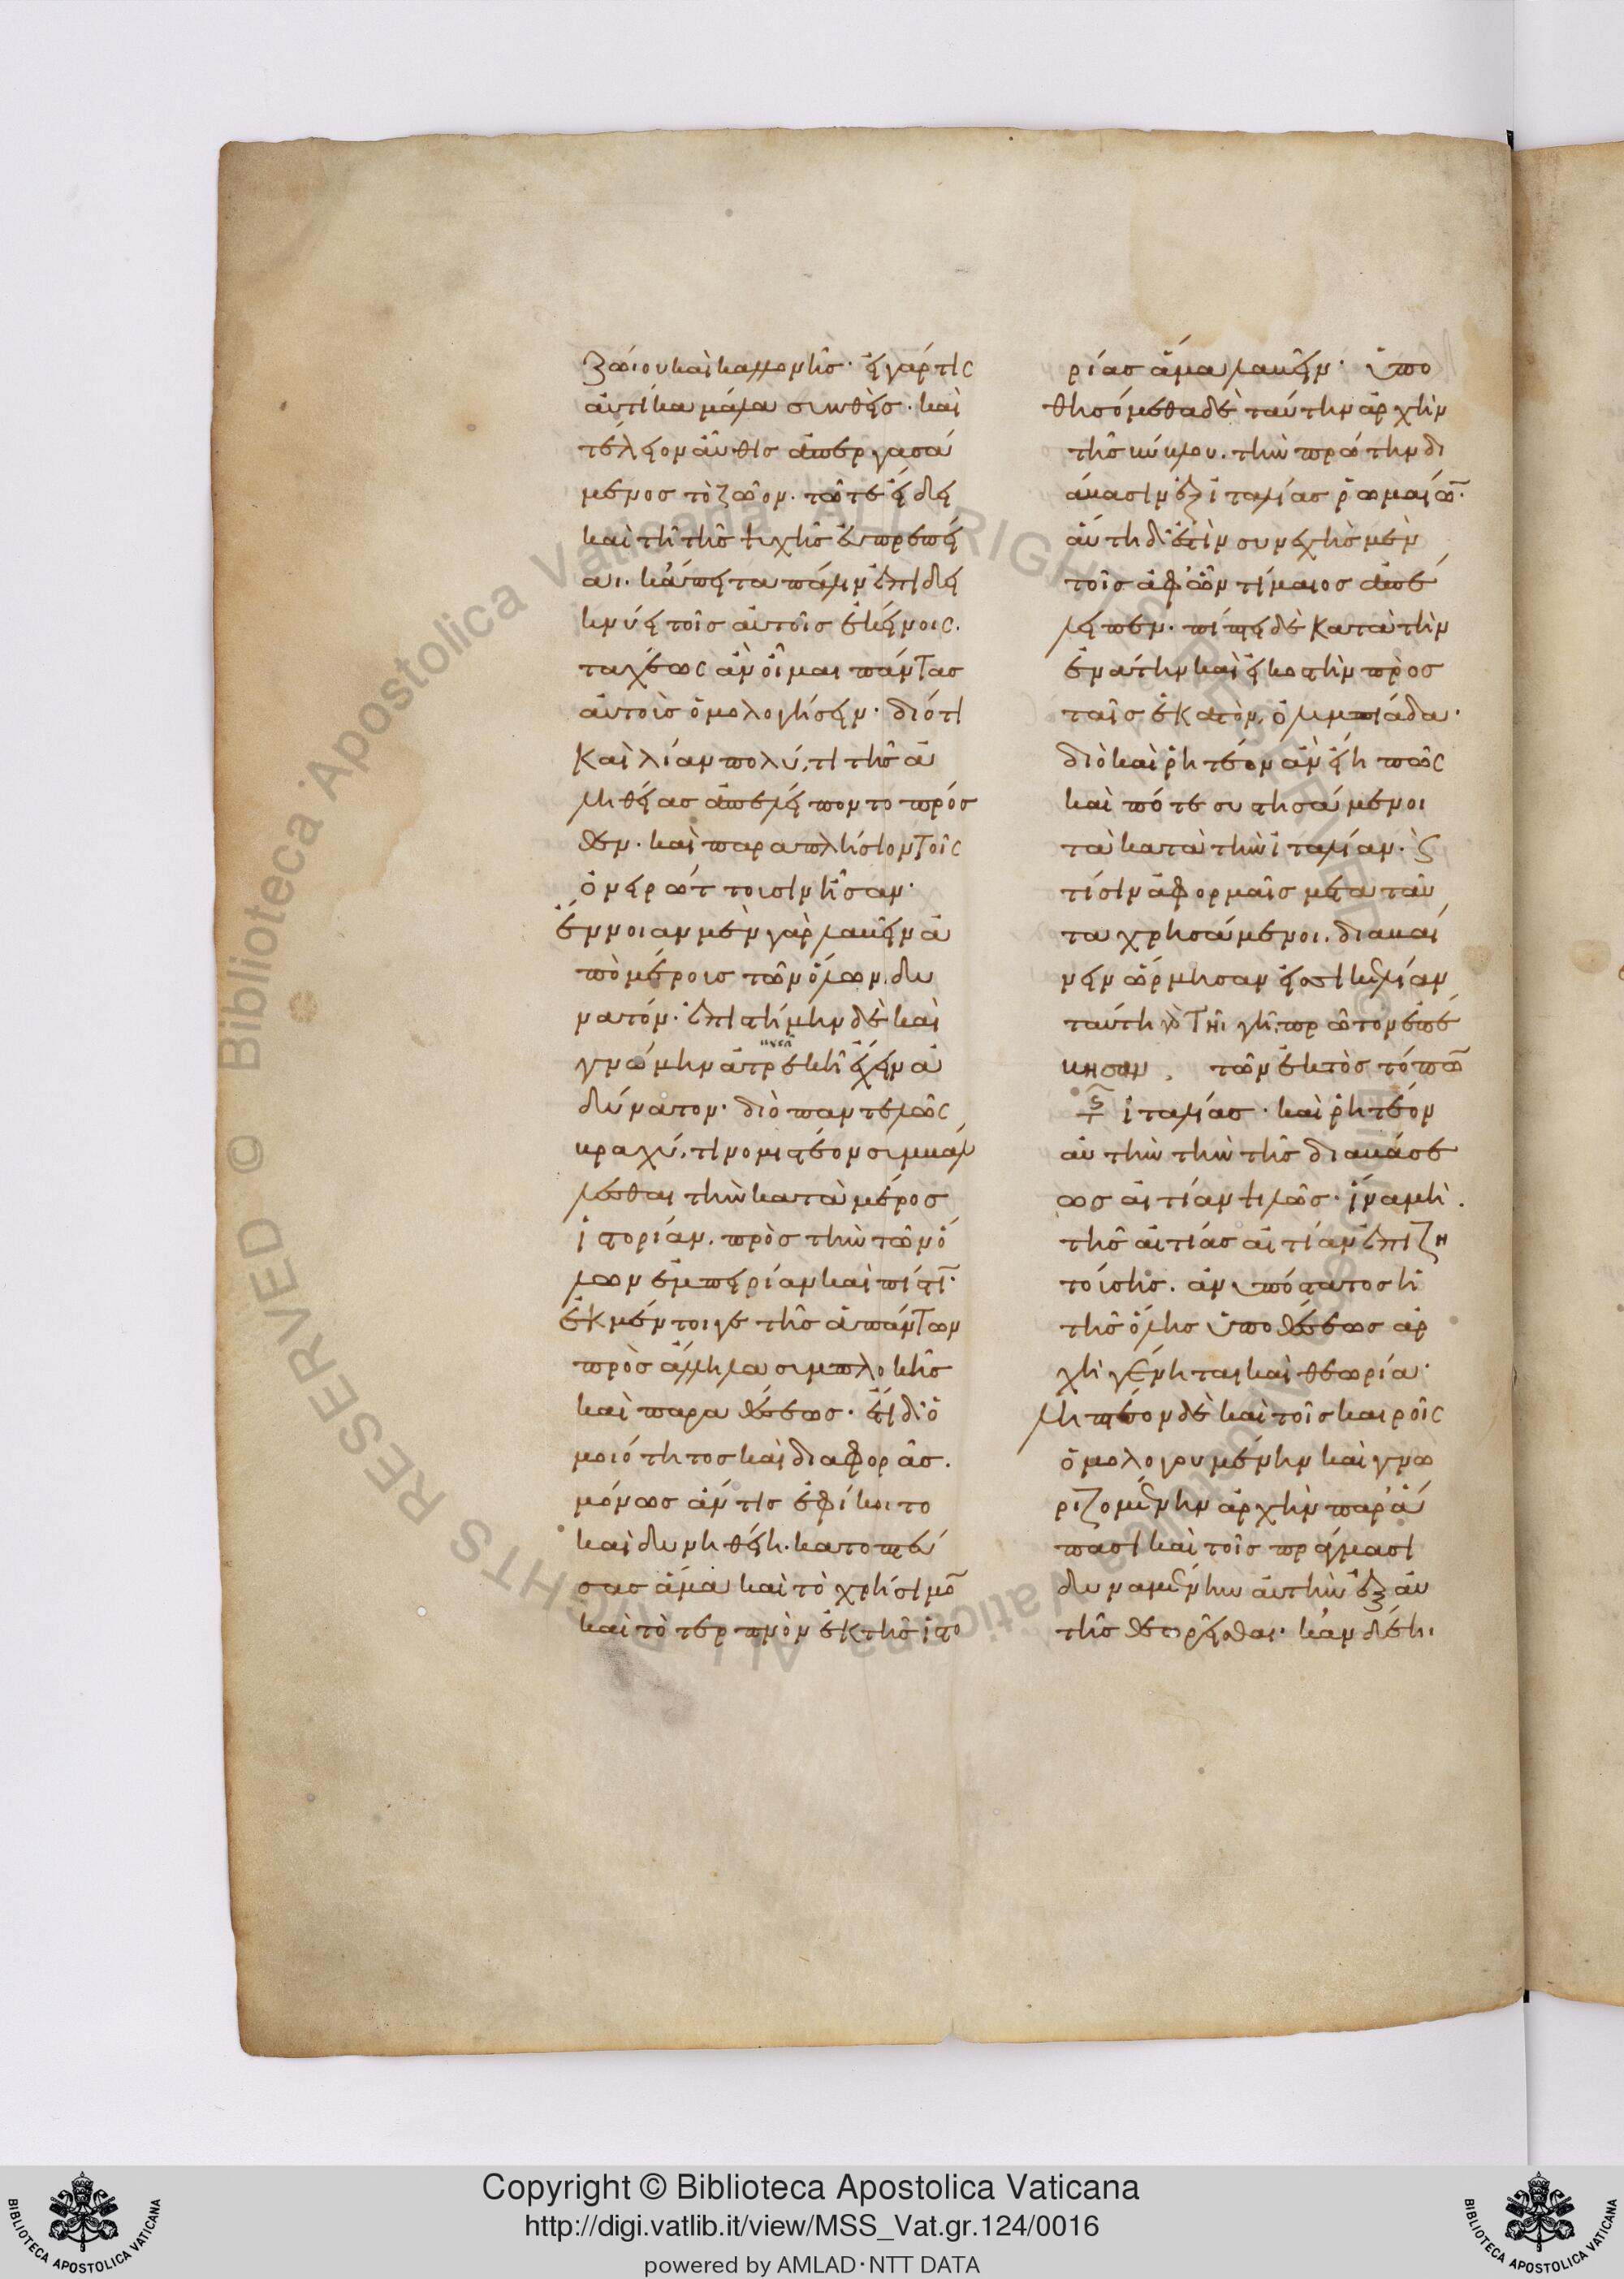 ζώιου καὶ καλλονῆς· εἰ γάρ τις
αὐτίκα μάλα συνθεὶς· καὶ
τέλειον αὖθις ἀπεργασά
μενος τὸ ζῶον· τῶ τε εἴδει
καὶ τῆ τῆς ψυχῆς εὐπρεπεί
αι. κἄπειτα πάλιν ἐπιδει
κνύει τοῖς αὐτοῖς ἐκείνοις.
ταχέως ἂν οἶμαι πάντας
αὐτοὺς ὁμολογήσειν· διότι
καὶ λίαν πολύ, τι τῆς ἀ
ληθείας ἀπελείποντο πρόσ
θεν· καὶ παραπλήσιον τοῖς
ὀνειρώττουσιν ἦσαν·
ἔννοιαν μὲν γὰρ λαβεῖν ἀ
πὸ μέρους τῶν ὅλων. δυ
νατόν· ἐπιστήμην δὲ καὶ
γνώμην ἀτρεκῆ ἔχειν ἀ
δύνατον· διὸ παντελῶς
βραχύ, τι νομιστέον συμβάλ
λεσθαι τὴν κατὰ μέρος
ἱστορίαν. πρὸς τὴν τῶν ὅ
λων ἐμπειρίαν καὶ πίστι̅·
ἐκ μέντοι γε τῆς ἁπάντων
πρὸς ἄλληλα συμπλοκῆς
καὶ παραθέσεως· ἔτι δ' ὁ
μοιότητος καὶ διαφορᾶς.
μόνως ἄν τις ἐφίκοιτο
καὶ δυνηθείη. κατοπτεύ
σας ἅμα καὶ τὸ χρήσιμο̅
καὶ τὸ τερπνὸν ἐκ τῆς ἱστο
ρίας ἅμα λαβεῖν· ὑπο
θησόμεθα δὲ ταύτην ἀρχὴν
τῆς βύβλου. τὴν πρώτην δι
άβασιν ἐξ ἰταλίας ῥωμαίω̅·
αὕτη δ' ἐστὶν συνεχὴς μὲν
τοῖς ἀφ' ὧν τίμαιος ἀπέ
λειπεν· πίπτει δὲ κατὰ τὴν
ἐνάτην καὶ εἰκοστὴν πρὸς
ταῖς ἑκατὸν, ὀλυμπιάδα·
διὸ καὶ ῥητέον ἂν εἴη πῶς
καὶ πότε συστησάμενοι
τὰ κατὰ τὴν ἰταλίαν· ϗ
τίσιν ἀφορμαῖς μετὰ ταῦ
τα χρησάμενοι. διαβαί
νειν ὥρμησαν εἰς σικελίαν
ταύτη γὰρ τῆι γῆ, πρῶτον ἐπέ
βησαν, τῶν ἐκτὸς τόπω̅
τ̅ς ἰταλίας· καὶ ῥητέον
αὐτὴν τὴν τῆς διαβάσε
ως αἰτίαν ψιλῶς· ἵνα μὴ.
τῆς αἰτίας αἰτίαν ἐπιζη
τούσης. ἀνυπόστατος ἡ
τῆς ὅλης ὑποθέσεως ἀρ
χὴ γένηται καὶ θεωρία·
ληπτέον δὲ καὶ τοῖς καιροῖς
ὁμολογουμένην καὶ γνω
ριζομένην ἀρχὴν παρ' ἅ
πασι καὶ τοῖς πράγμασι
δυναμένην αὐτὴν ἐξ αὑ
τῆς θεωρεῖσθαι· κἂν δέηι
Copyright © Biblioteca Apostolica Vaticana
http://digi.vatlib.it/view/MSS_Vat.gr.124/0016
powered by AMLAD·NTT DATA
BIBLIOTECA APOSTOLICA VATICANA
BIBLIOTECA APOSTOLICA VATICANA
Biblioteca Apostolica Vaticana ALL RIGHTS RESERVED ©